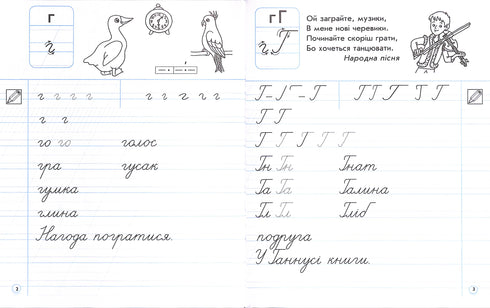 г
г
г г г г г г г г г
г г
го го голос
гра гусак
гумка
глина
Нагода погратися.
2
г Г
Г
Ой заграйте, музики,
В мене нові черевики.
Починайте скоріш грати,
Бо хочеться танцювати.
Народна пісня
Г Г Г Г Г Г Г Г
Г Г
Г Г Г Г Г
Гн Гн Гнат
Га Га Галина
Гл Гл Гліб
подруга
У Ганнусі книги.
3